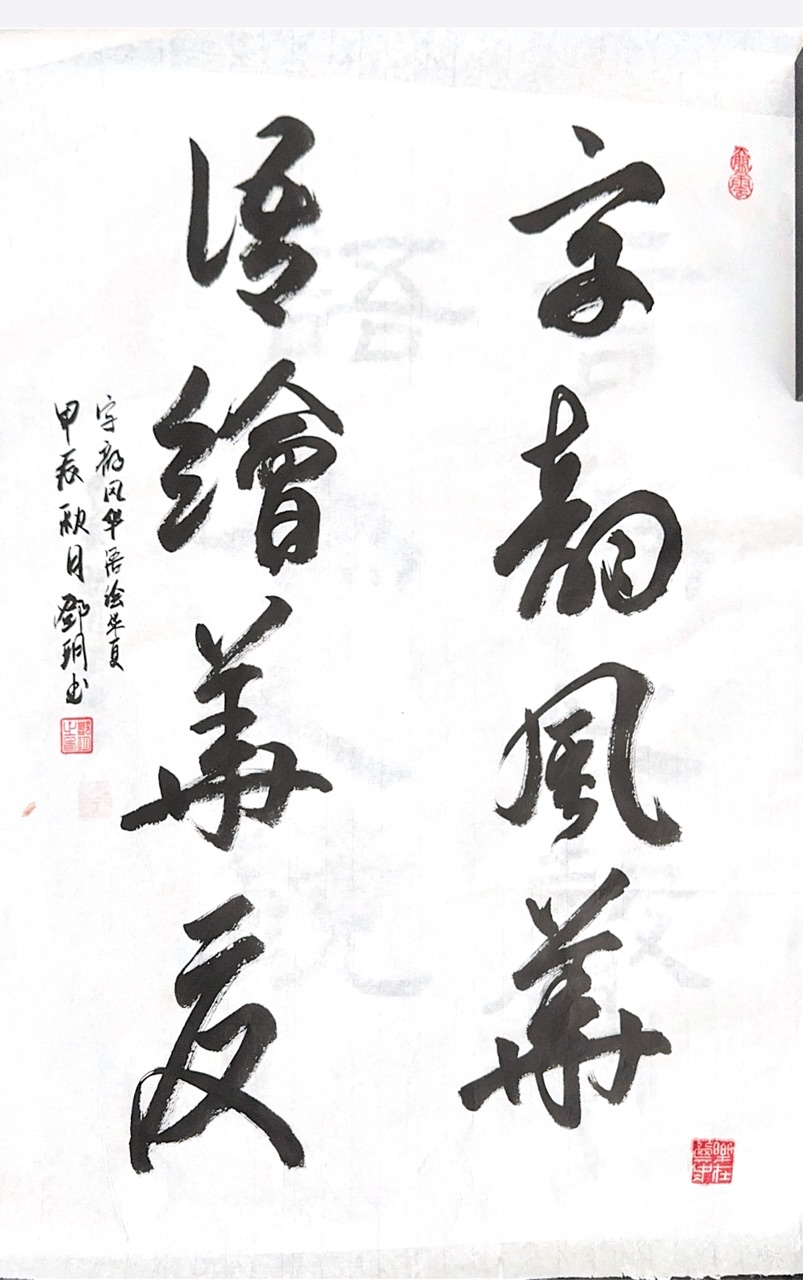 字韵風華
语繪華夏
字韵风华语绘华夏
甲辰秋月鄧玥书